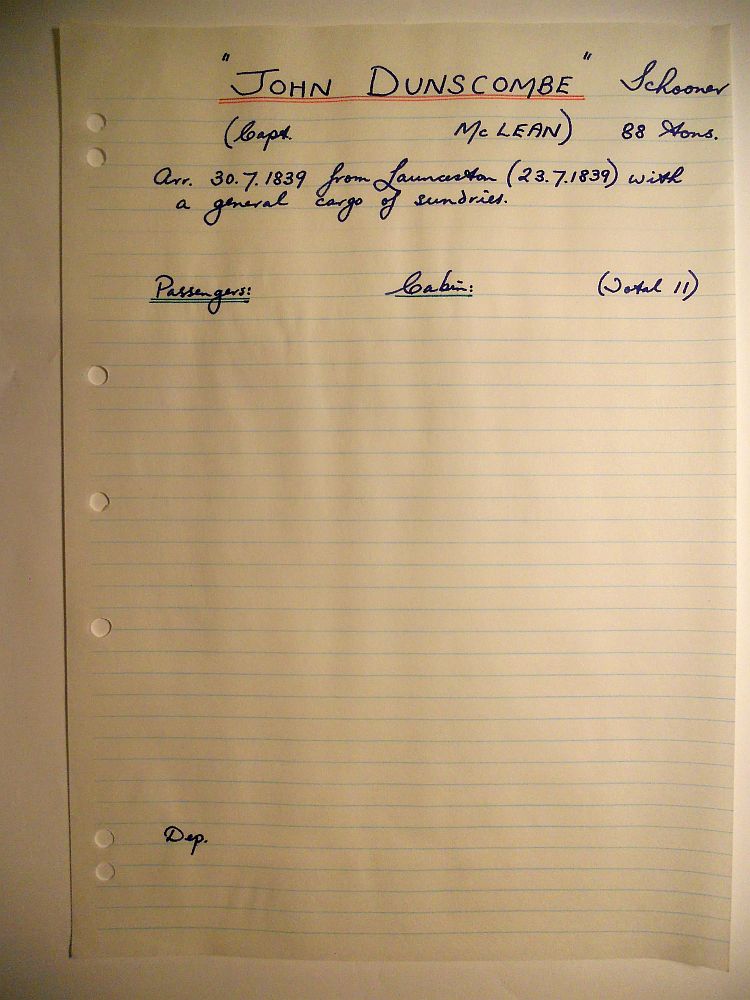 "JOHN DUNSCOMBE" Schooner
(Capt. McLEAN) 88 tons.
Arr. 30.7.1839 from Launceston (23.7.1839) with
a general cargo of sundries.
Passengers: Cabin: (Total 11)
Dep.